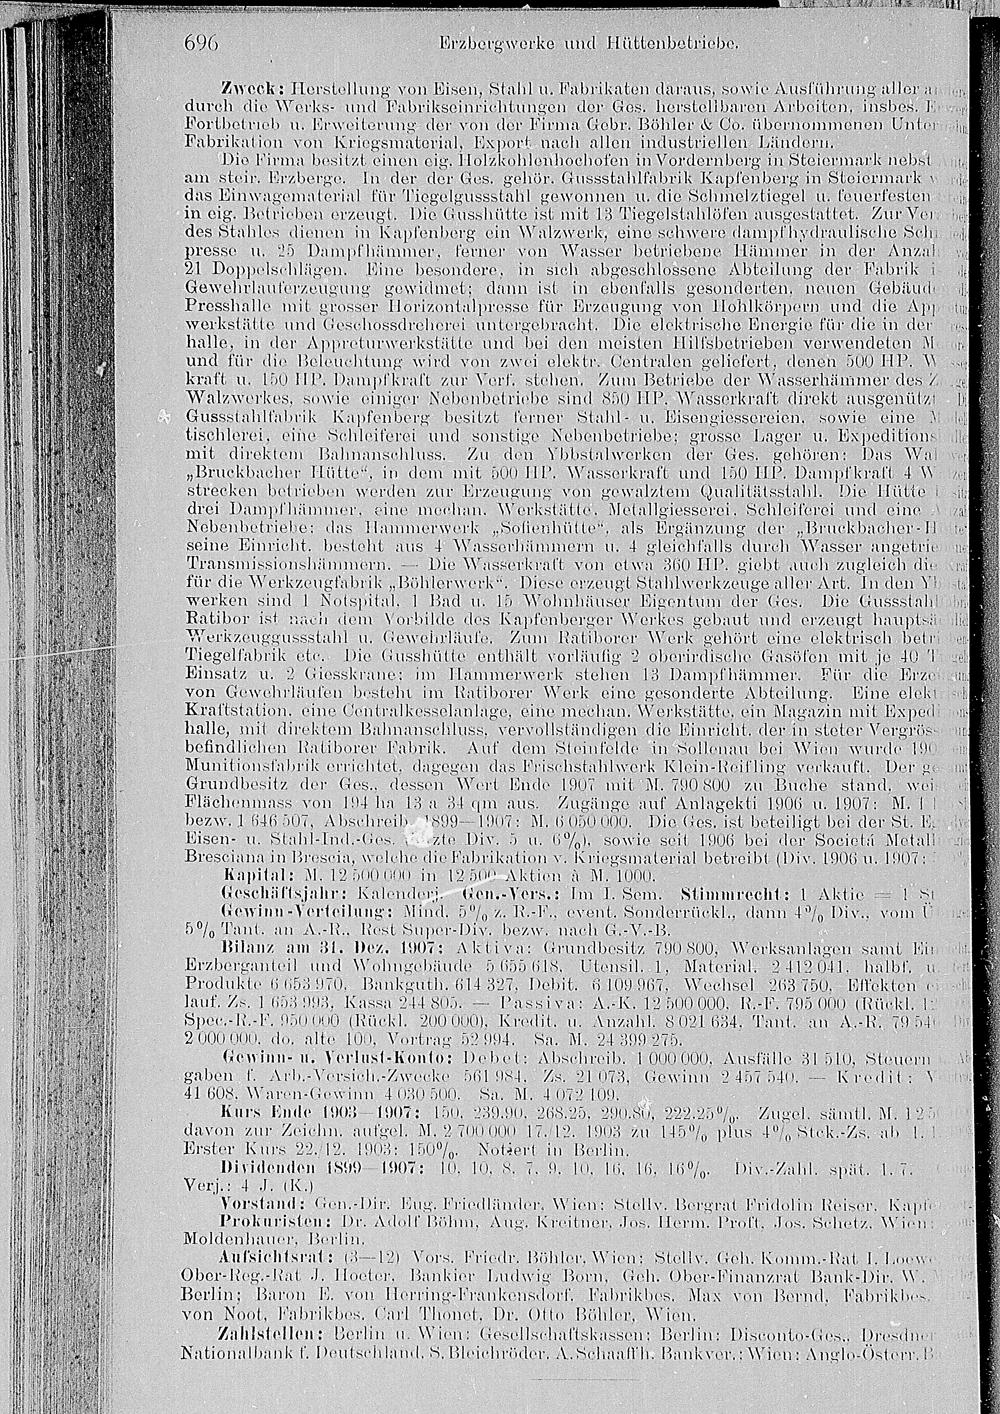 696 Erzbergwerke und Hüttenbetriebe.
Zweck: Herstellung von Eisen, Stahl u. Fabrikaten daraus, sowie Ausführung aller
durch die Werks- und Fabrikseinrichtungen der Ges. herstellbaren Arbeiten, insbes.
Fortbetrieb u. Erweiterung der von der Firma Gebr. Böhler & Co. übernommenen
Fabrikation von Kriegsmaterial, Export nach allen industriellen Ländern.
Die Firma besitzt einen eig. Holzkohlenhochofen in Vordernberg in Steiermark nebst
am steir. Erzberge. In der der Ges. gehör. Gussstahlfabrik Kapfenberg in Steiermark
das Einwagematerial für Tiegelgussstahl gewonnen u. die Schmelztiegel u. feuerfesten
in eig. Betrieben erzeugt. Die Gusshütte ist mit 13 Tiegelstahlöfen ausgestattet. Zur
des Stahles dienen in Kapfenberg ein Walzwerk, eine schwere dampfhydraulische
presse u. 25 Dampfhämmer, ferner von Wasser betriebene Hämmer in der
21 Doppelschlägen. Eine besondere, in sich abgeschlossene Abteilung der Fabrik
Gewehrlauferzeugung gewidmet; dann ist in ebenfalls gesonderten, neuen
Presshalle mit grosser Horizontalpresse für Erzeugung von Hohlkörpern und die
werkstätte und Geschossdreherei untergebracht. Die elektrische Energie für die in der
halle, in der Appreturwerkstätte und bei den meisten Hilfsbetrieben verwendeten
und für die Beleuchtung wird von zwei elektr. Centralen geliefert, denen 500 HP.
kraft u. 150 HP. Dampfkraft zur Verf. stehen. Zum Betriebe der Wasserhämmer des
Walzwerkes, sowie einiger Nebenbetriebe sind 850 HP. Wasserkraft direkt ausgenützt
Gussstahlfabrik Kapfenberg besitzt ferner Stahl- u. Eisengiessereien, sowie eine
tischlerei, eine Schleiferei und sonstige Nebenbetriebe; grosse Lager u.
mit direktem Bahnanschluss. Zu den Ybbstalwerken der Ges. gehören: Das
„Bruckbacher Hütte“, in dem mit 500 HP. Wasserkraft und 150 HP. Dampfkraft 4
strecken betrieben werden zur Erzeugung von gewalztem Qualitätsstahl. Die Hütte
drei Dampfhämmer, eine mechan. Werkstätte, Metallgiesserei, Schleiferei und eine
Nebenbetriebe; das Hammerwerk „Sofienhütte“, als Ergänzung der
seine Einricht. besteht aus 4 Wasserhämmern u. 4 gleichfalls durch Wasser
Transmissionshämmern. — Die Wasserkraft von etwa 360 HP. giebt auch zugleich die
für die Werkzeugfabrik „Böhlerwerk“. Diese erzeugt Stahlwerkzeuge aller Art. In den
werken sind 1 Notspital, 1 Bad u. 15 Wohnhäuser Eigentum der Ges. Die
Ratibor ist nach dem Vorbilde des Kapfenberger Werkes gebaut und erzeugt
Werkzeuggussstahl u. Gewehrläufe. Zum Ratiborer Werk gehört eine elektrisch
Tiegelfabrik etc. Die Gusshütte enthält vorläufig 2 oberirdische Gasöfen mit je 40
Einsatz u. 2 Giesskrane; im Hammerwerk stehen 13 Dampfhämmer. Für die
von Gewehrläufen besteht im Ratiborer Werk eine gesonderte Abteilung. Eine
Kraftstation, eine Centralkesselanlage, eine mechan. Werkstätte, ein Magazin mit
halle, mit direktem Bahnanschluss, vervollständigen die Einricht. der in steter
befindlichen Ratiborer Fabrik. Auf dem Steinfelde in Sollenau bei Wien wurde
Munitionsfabrik errichtet, dagegen das Frischstahlwerk Klein-Reifling verkauft. Der
Grundbesitz der Ges., dessen Wert Ende 1907 mit M. 790 800 zu Buche stand,
Flächenmass von 194 ha 13 a 34 qm aus. Zugänge auf Anlagekti 1906 u. 1907: M.
bezw. 1 646 507, Abschreib. 1899—1907: M. 6 050 000. Die Ges. ist beteiligt bei der St. E.
Eisen- u. Stahl-Ind.-Ges. Div. 5 u. 6%), sowie seit 1906 bei der Societá
Bresciana in Brescia, welche die Fabrikation v. Kriegsmaterial betreibt (Div. 1906 u. 1907:
Kapital: M. 12 500 000 in 12 500 Aktien à M. 1000.
Geschäftsjahr: Kalenderj. Gen.-Vers.: Im I. Sem. Stimmrecht: 1 Aktie = 1
Gewinn-Verteilung: Mind. 5% z. R.-F., event. Sonderrückl., dann 4% Div., vom
5% Tant. an A.-R., Rest Super-Div. bezw. nach G.-V.-B.
Bilanz am 31. Dez. 1907: Aktiva: Grundbesitz 790 800, Werksanlagen samt
Erzberganteil und Wohngebäude 5 655 618, Utensil. 1, Material. 2 412 041, halbf. u.
Produkte 6 653 970, Bankguth. 614 327, Debit. 6 109 967, Wechsel 263 750, Effekten
lauf. Zs. 1 653 993, Kassa 244 805. — Passiva: A.-K. 12 500 000, R.-F. 795 000 (Rückl.
Spec.-R.-F. 950 000 (Rückl. 200 000), Kredit. u. Anzahl. 8 021 634, Tant. an A.-R.
2 000 000, do. alte 100, Vortrag 52 994. Sa. M. 24 399 275.
Gewinn- u. Verlust-Konto: Debet: Abschreib. 1 000 000, Ausfälle 31 510, Steuern
gaben f. Arb.-Versich.-Zwecke 561 984, Zs. 21 073, Gewinn 2 457 540. — Kredit:
41 608, Waren-Gewinn 4 030 500. Sa. M. 4 072 109.
Kurs Ende 1903—1907: 150, 239.90, 268.25, 290.80, 222.25%. Zugel. sämtl. M.
davon zur Zeichn. aufgel. M. 2 700 000 17./12. 1903 zu 145% plus 4% Stck.-Zs. ab
Erster Kurs 22./12. 1903: 150%. Notiert in Berlin.
Dividenden 1899—1907: 10, 10, 8, 7, 9, 10, 16, 16, 16%. Div.-Zahl. spät. 1. 7.
Verj.: 4 J. (K.)
Vorstand: Gen.-Dir. Eug. Friedländer, Wien; Stellv. Bergrat Fridolin Reiser,
Prokuristen: Dr. Adolf Böhm, Aug. Kreitner, Jos. Herm. Proft, Jos. Schetz, Wien;
Moldenhauer, Berlin.
Aufsichtsrat: (3—12) Vors. Friedr. Böhler, Wien; Stellv. Geh. Komm.-Rat I. Loewe
Ober-Reg.-Rat J. Hoeter, Bankier Ludwig Born, Geh. Ober-Finanzrat Bank-Dir. W.
Berlin; Baron E. von Herring-Frankensdorf, Fabrikbes. Max von Bernd, Fabrikbes.
von Noot, Fabrikbes. Carl Thonet, Dr. Otto Böhler, Wien.
Zahlstellen: Berlin u. Wien: Gesellschaftskassen; Berlin: Disconto-Ges., Dresdner
Nationalbank f. Deutschland, S. Bleichröder, A. Schaaffh. Bankver.; Wien: Anglo-Österr.